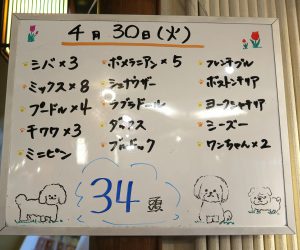 4月30日(火)
シバ×3
ミックス×8
プードル×4
チワワ×3
ミニピン
ポメラニアン×5
シュナウザー
ラブラドール
ダックス
ブルドック
フレンチブル
ボストンテリア
ヨークシャテリア
シーズー
ワンちゃん×2
34頭